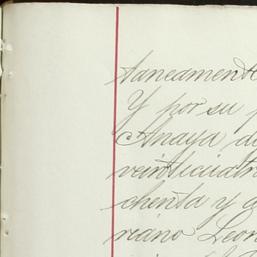 taneamente
Y por su
Anaya de
veinticuatr
chenta y a
riano Leon